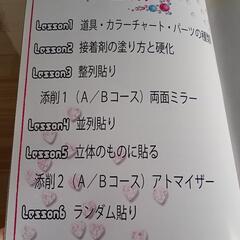 Lesson1 道具・カラーチャート・パーツの種類
Lesson2 接着剤の塗り方と硬化
Lesson3 整列貼り
添削1（A／Bコース）両面ミラー
Lesson4 並列貼り
Lesson5 立体のものに貼る
添削2（A／Bコース）アトマイザー
Lesson6 ランダム貼り